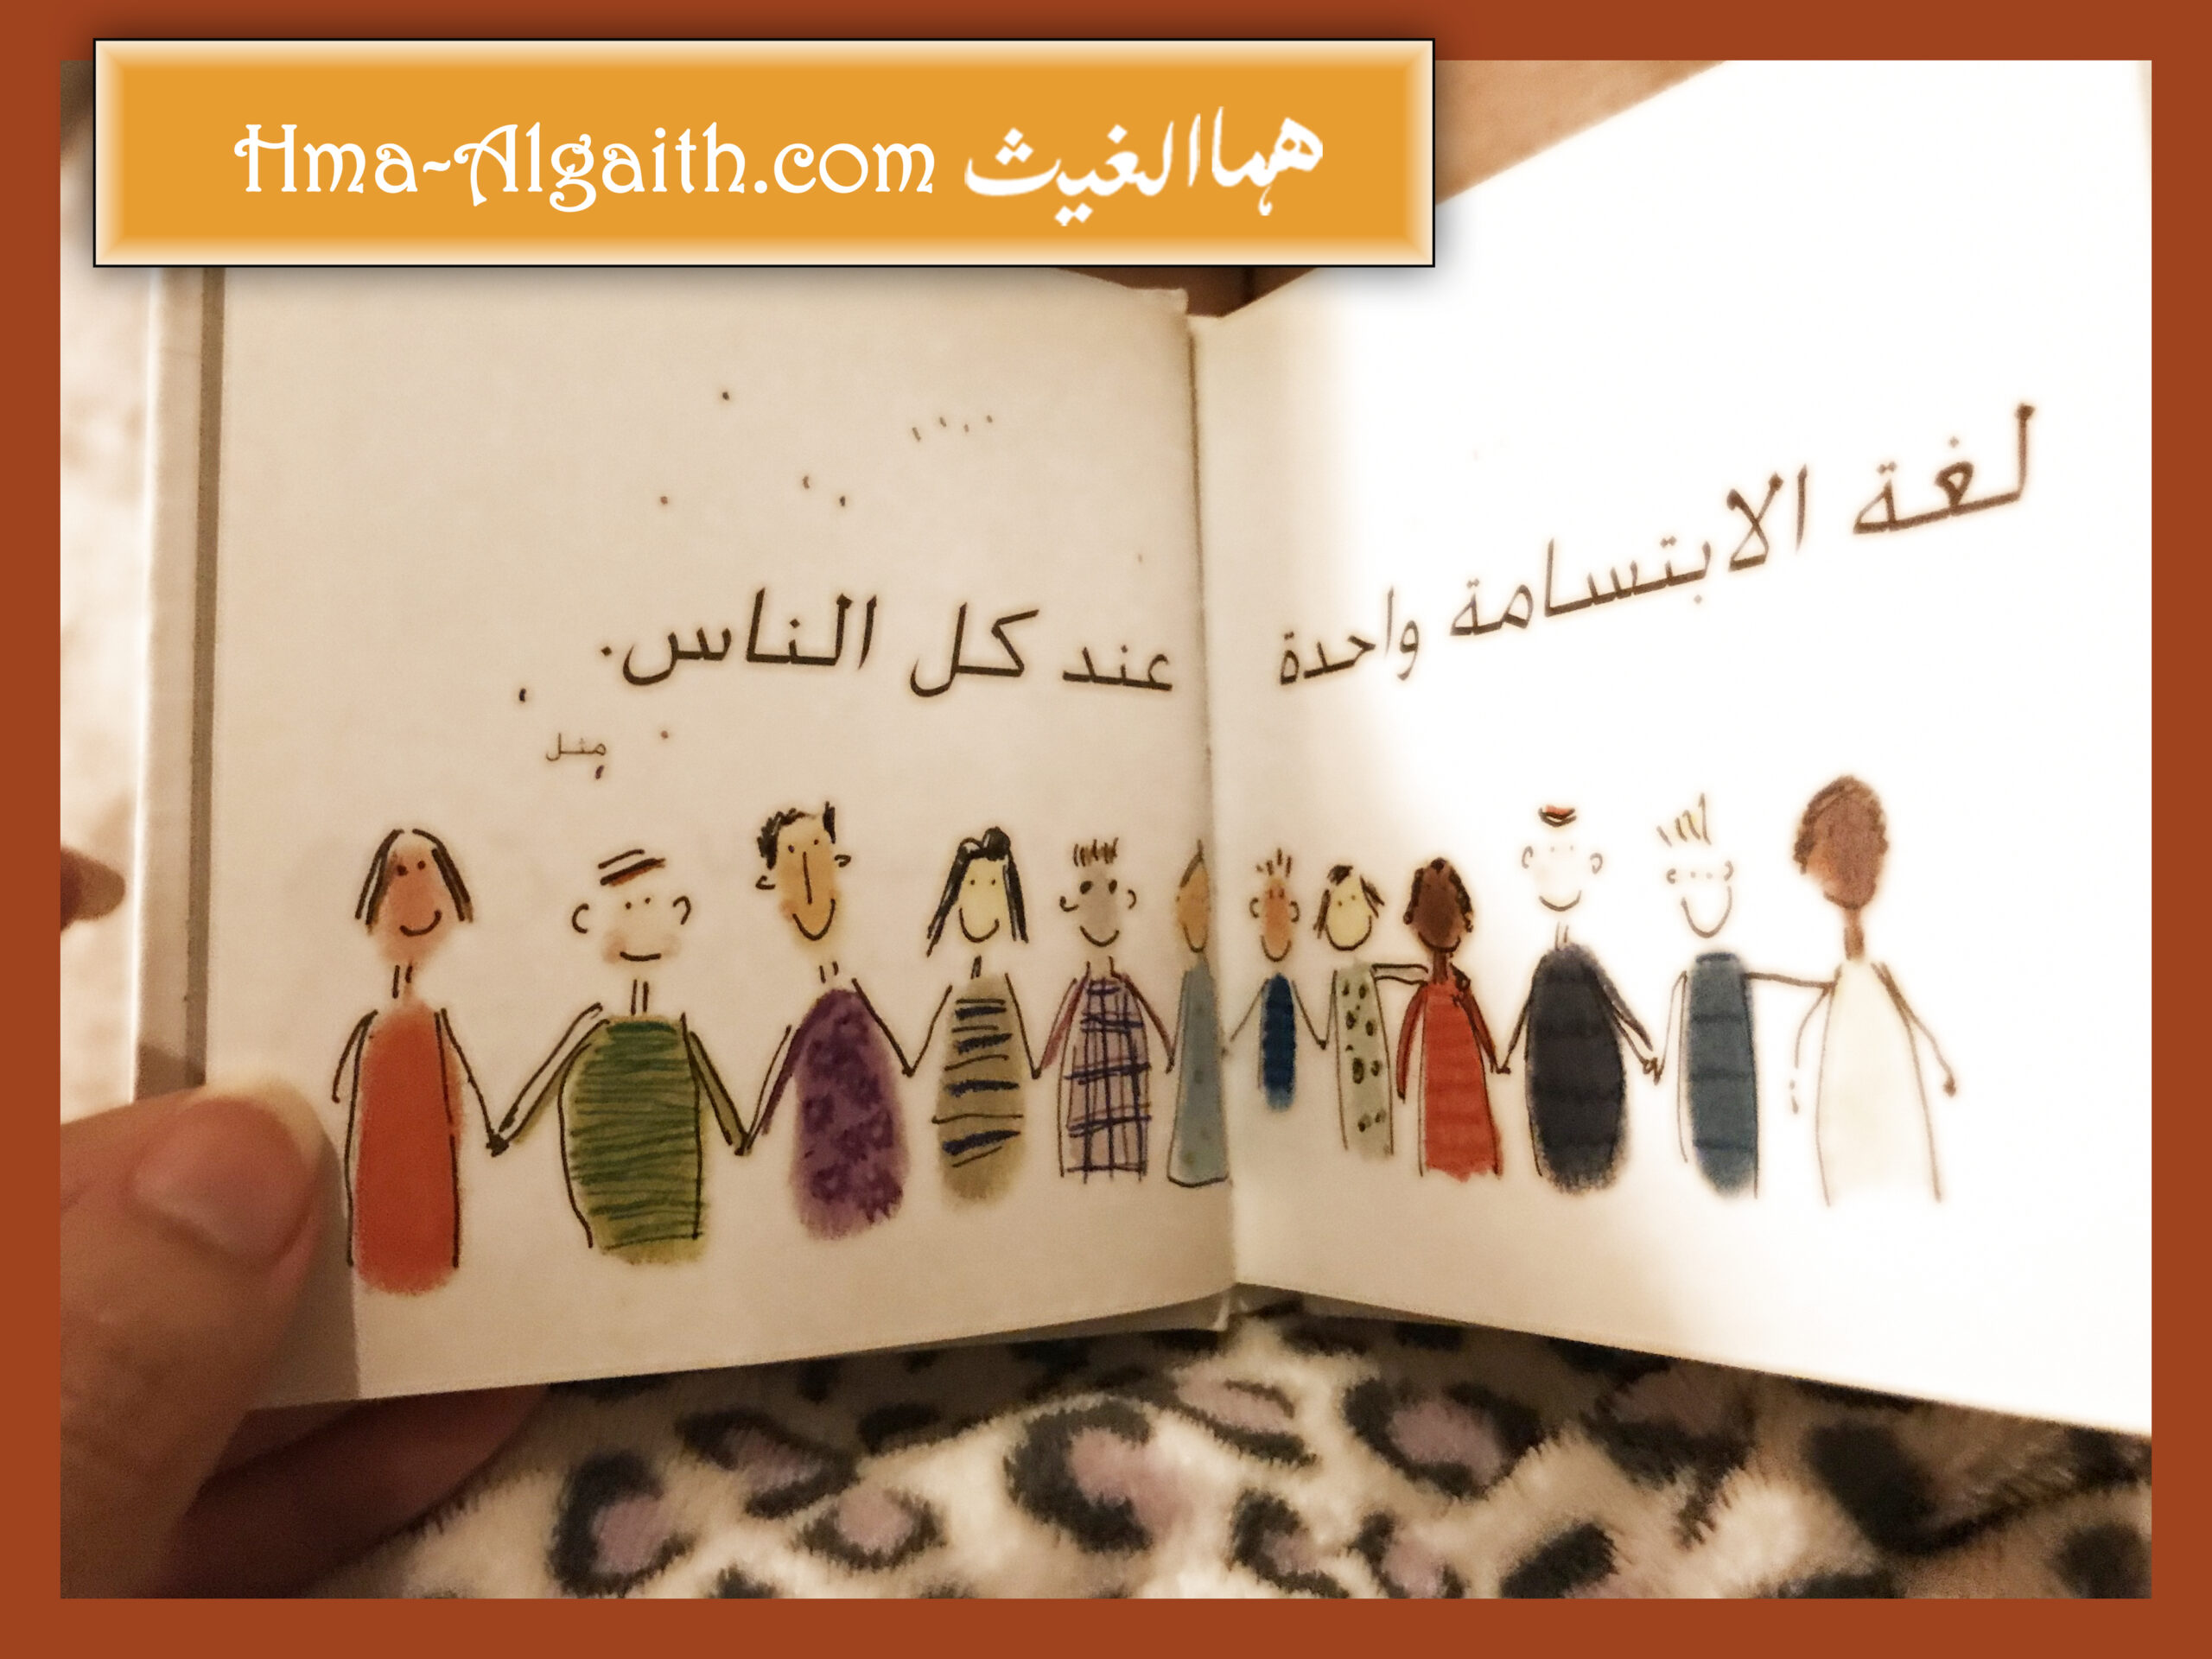 Hma-Algaith.com هما الغيث
لغة الابتسامة واحدة عند كل الناس.
مثل